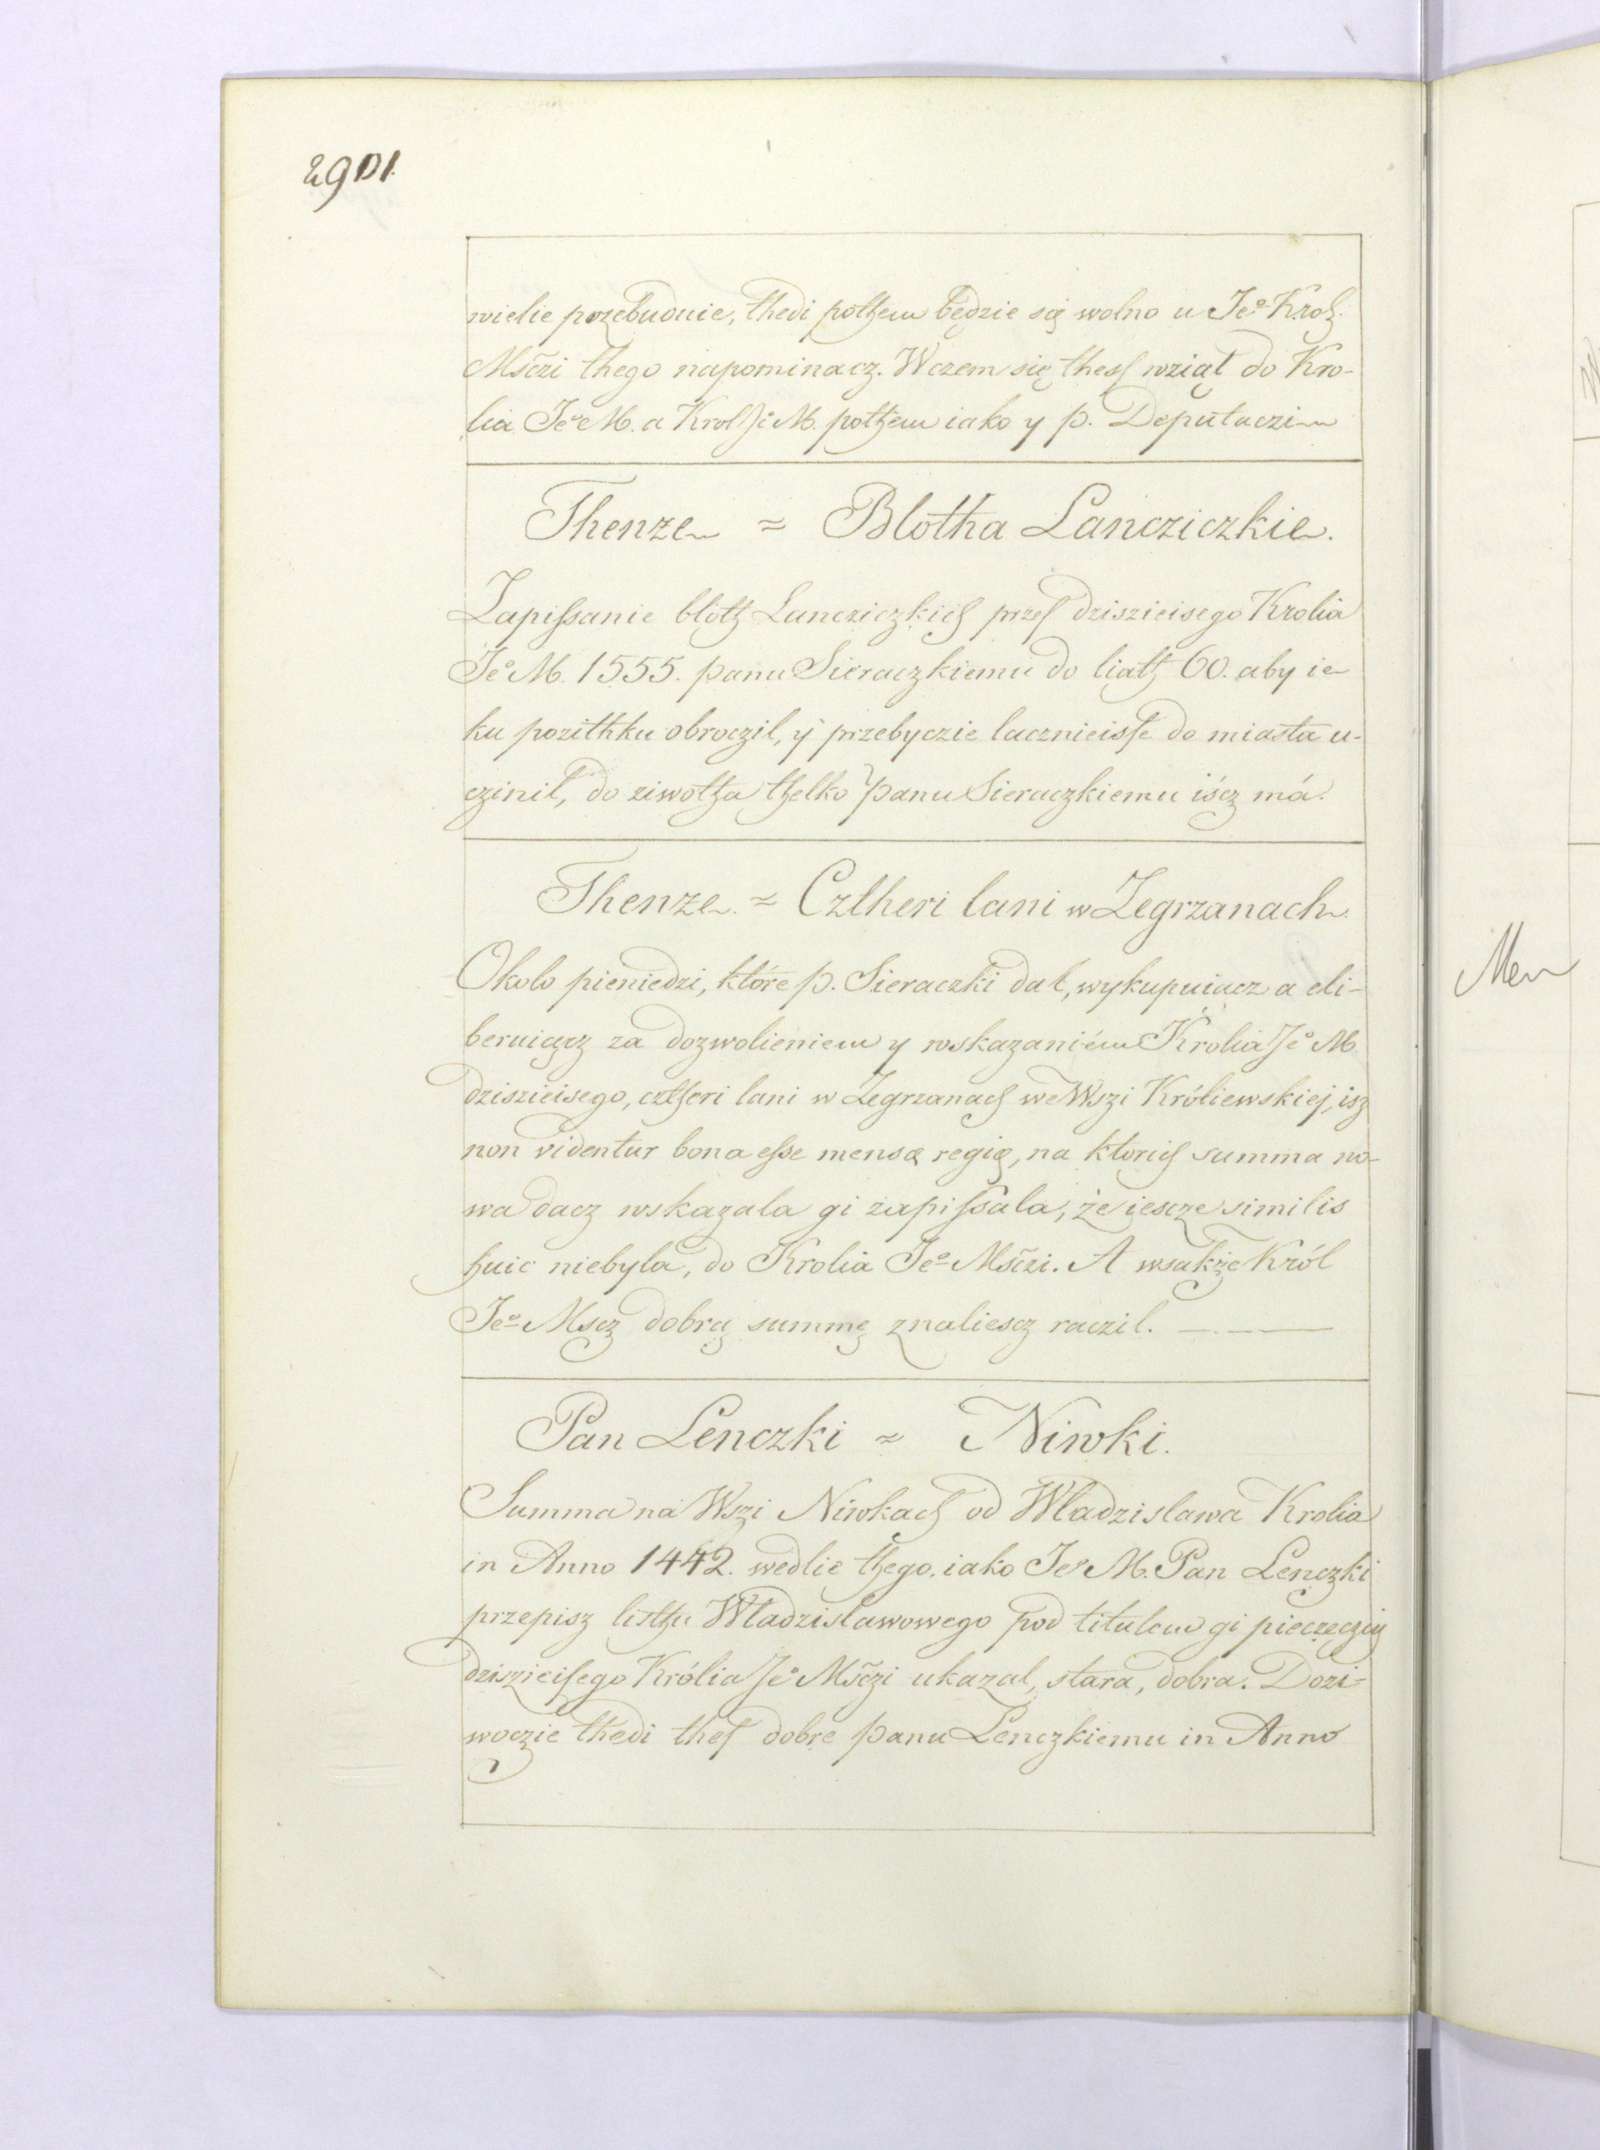 2901.
wielie przebuduie, thedi pothem będzie się wolno u Jeº Kroh.
Mśczi thego napominacz. W czem się thesz wziął do Kro-
lia Jeº M. a Krol Jº M. pothem iako y p. Deputaczim
Thenze ≈ Blotha Lancziczkie.
Zapissanie bloth Lancziczkich przes dzisieisego Krolia
Jeº M. 1555. panu Sieraczkiemu do liath 60. aby ie
ku pozithku obroczil, ÿ przebyczie lacznieisse do miasta u-
czinił, do ziwotha thelko panu Sieraczkiemu iścz má.
Thenze ≈ Cztheri lani w Zegrzanach
Okolo pieniedzi, które p. Sieraczki dał, wykupuiacz a eli-
beruiącz za dozwolieniem y roskazaniém Krolia Jeº M.
dziszieisego, cztheri lani w Zegrzanach we Wszi Króliewskiej, isz
non videntur bona esse mensæ regię, na ktorich summa no-
wa dacz wskazala gi zapissala, że iescze similis
huic niebyla, do Krolia Jeº Mśczi. A wsakże Król
Jeº Mscz dobrą summę znaliescz raczil.
Pan Lenczki ≈ Niwki.
Summa na Wszi Niwkach od Władzislawa Krolia
in Anno 1442. wedlie thego iako Jeº M. Pan Lenczki
przepisz listhu Władzisławowego pod titulem gi pieczęczią
dziszieisego Królia Jeº Mśczi ukazal, stara, dobra. Dozi-
woczie thedi thes dobre panu Lenczkiemu in Anno
Men